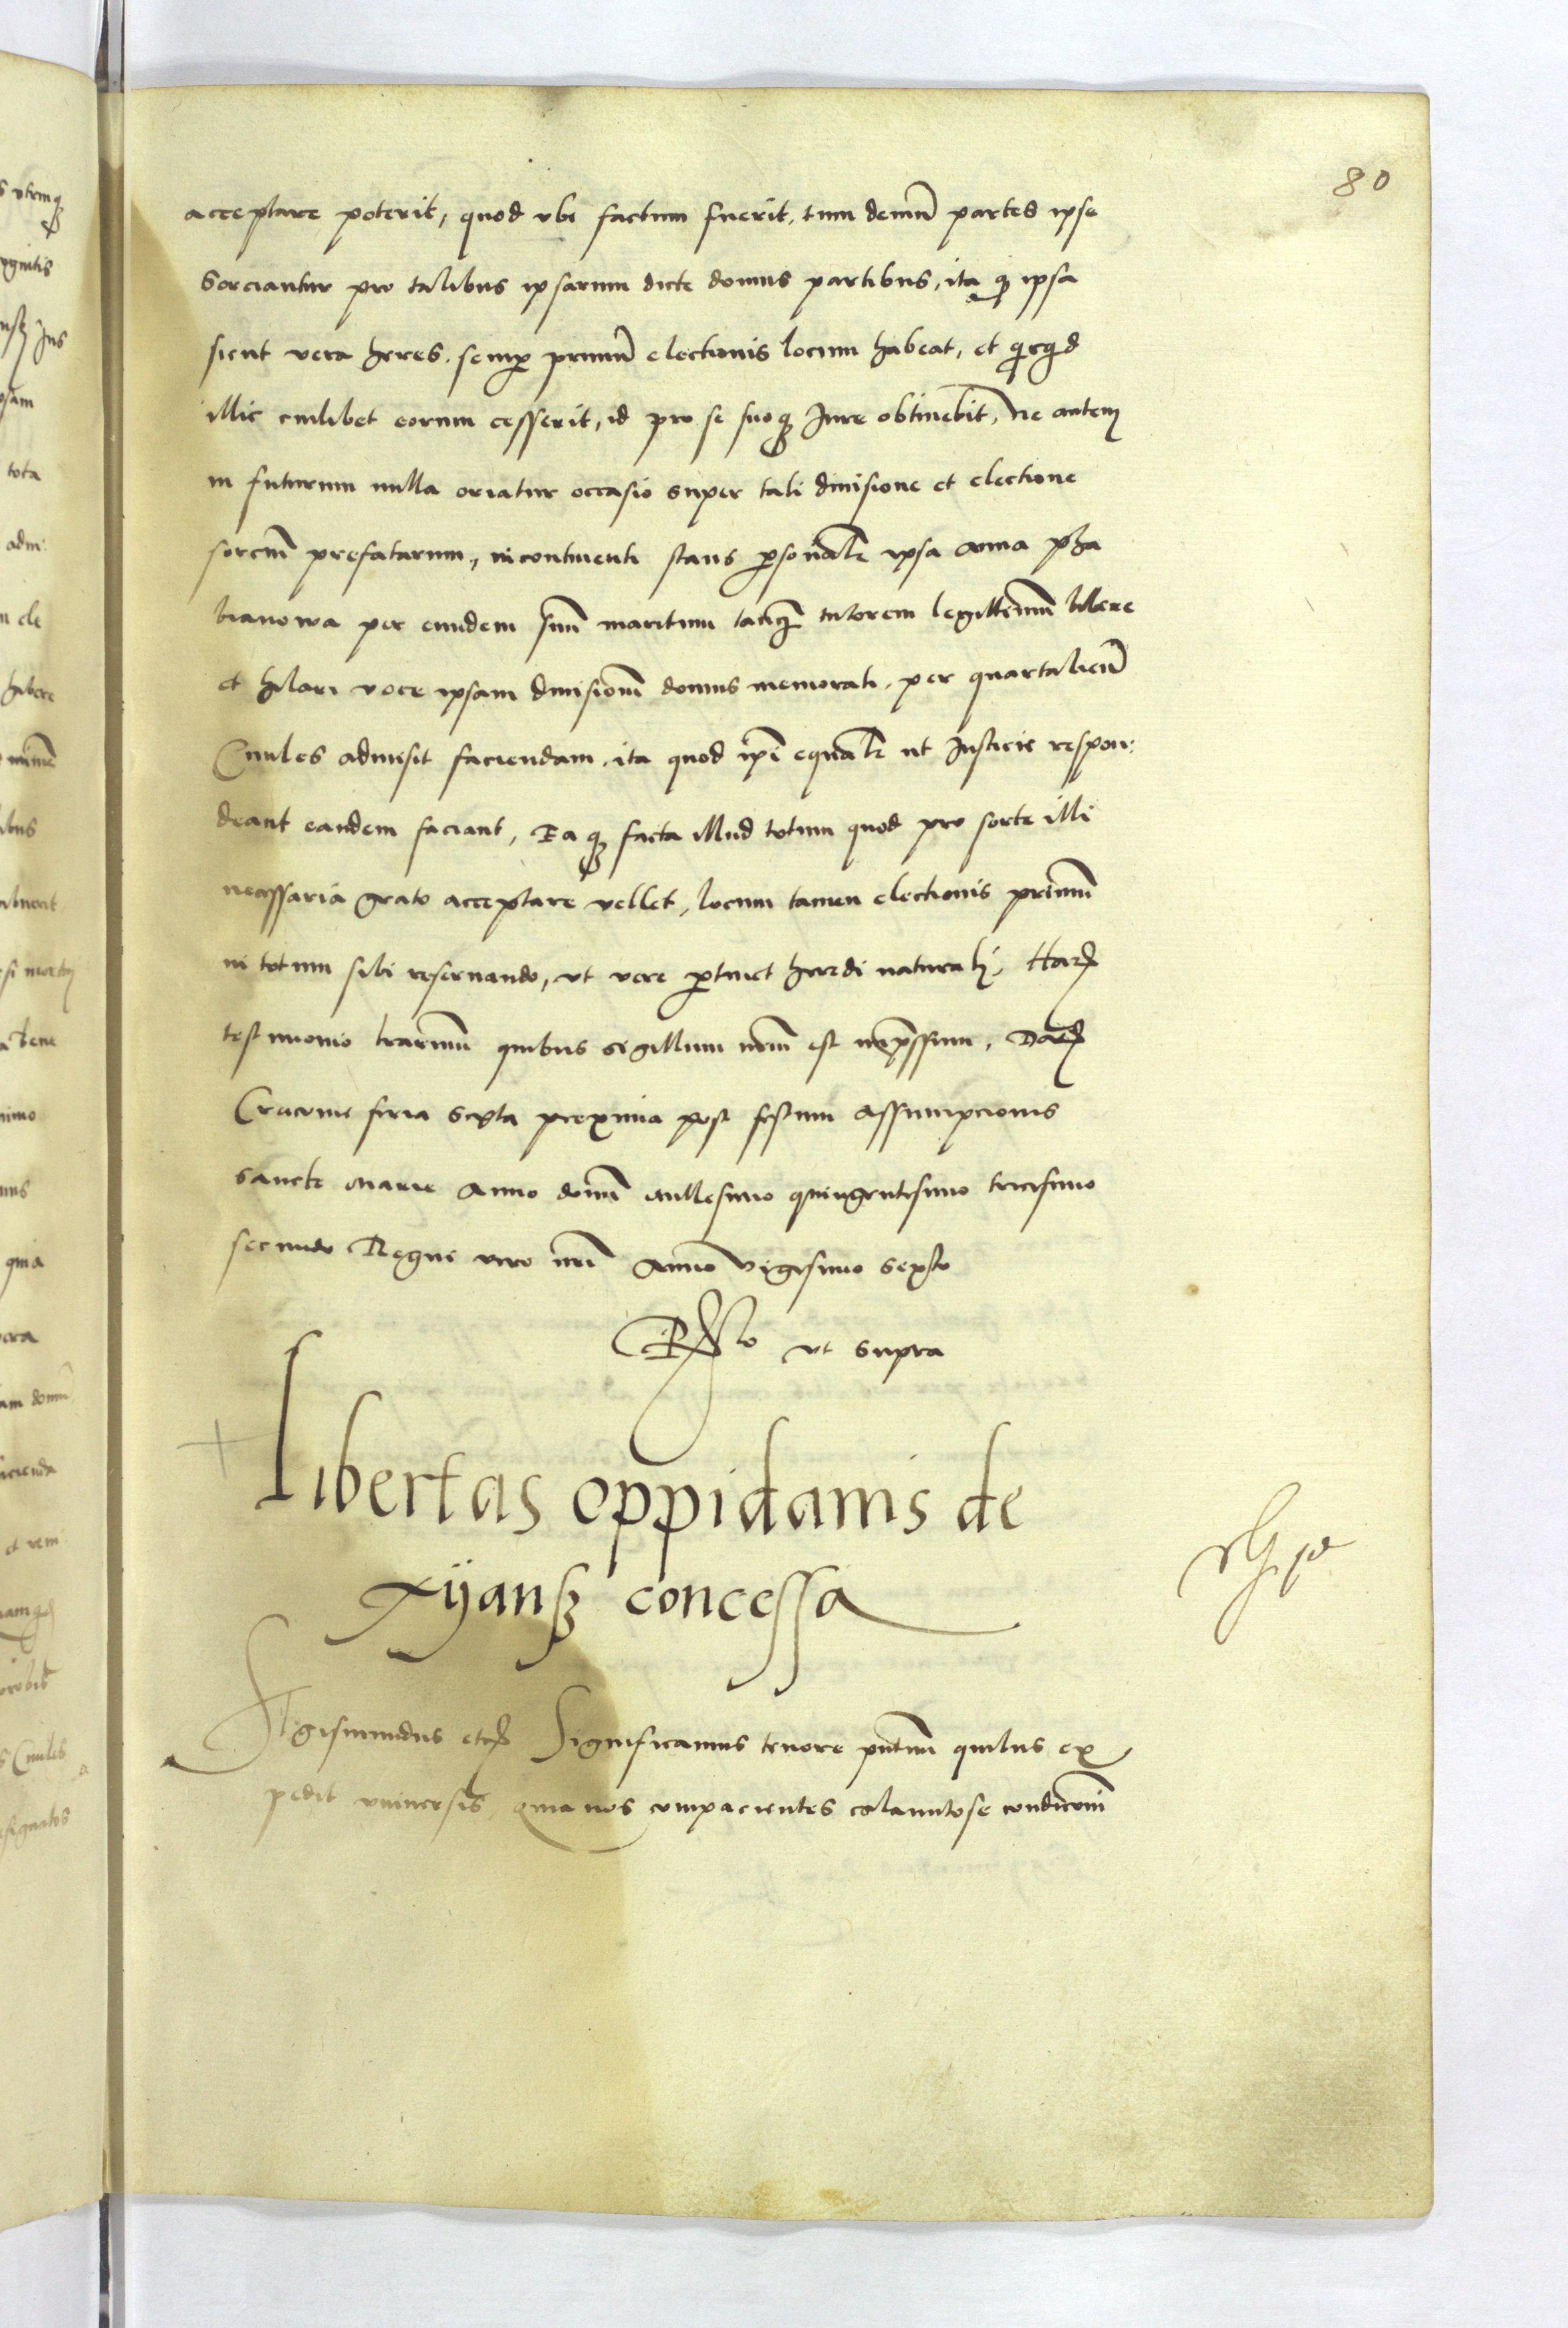 80
acceptare poterit, quod vbi factum fuerit, tum demũ partes ipse
Sorciantur pro talibus ipsarum dicte domus partibus, ita q ipsa
sicut vera heres, semp primũ electionis locum habeat, et quicqd
illic cuilibet eorum cesserit, id pro se suoq Iure obtinebit, Ne autem
in futurum nulla oriatur occasio super tali diuisione et electione
sorciũ prefatarum, incontinenti stans psonalr ipsa Anna
per eundem suũ maritum tanq tutorem legittimũ libere
et hilari voce ipsam diuisionẽ domus memorate, per quartalien̄
Ciuiles admisit faciendam, ita quod ipi equalr ut Iusticie respon:
deant eandem faciant, Ea q facta illud totum quod pro sorte illi
necessaria grato acceptare vellet, locum tamen electionis primũ
in totum sibi reseruando, vt vere ptinet heredi naturali, Har
testimonio lrarum quibus sigillum nrm est impssum, Dat
Cracouie feria sexta proxima post festum Assumpcionis
Sancte Marie Anno domi Millesimo quingentesimo tricesimo
secundo Regni vero nri Anno vigesimo sexto
Rlo vt supra
Libertas oppidanis de
Xÿansz concessa
Sigismundus etc Significamus tenore pntium quibus ex
pedit vniuersis, quia nos compacientes calamitose condicioni